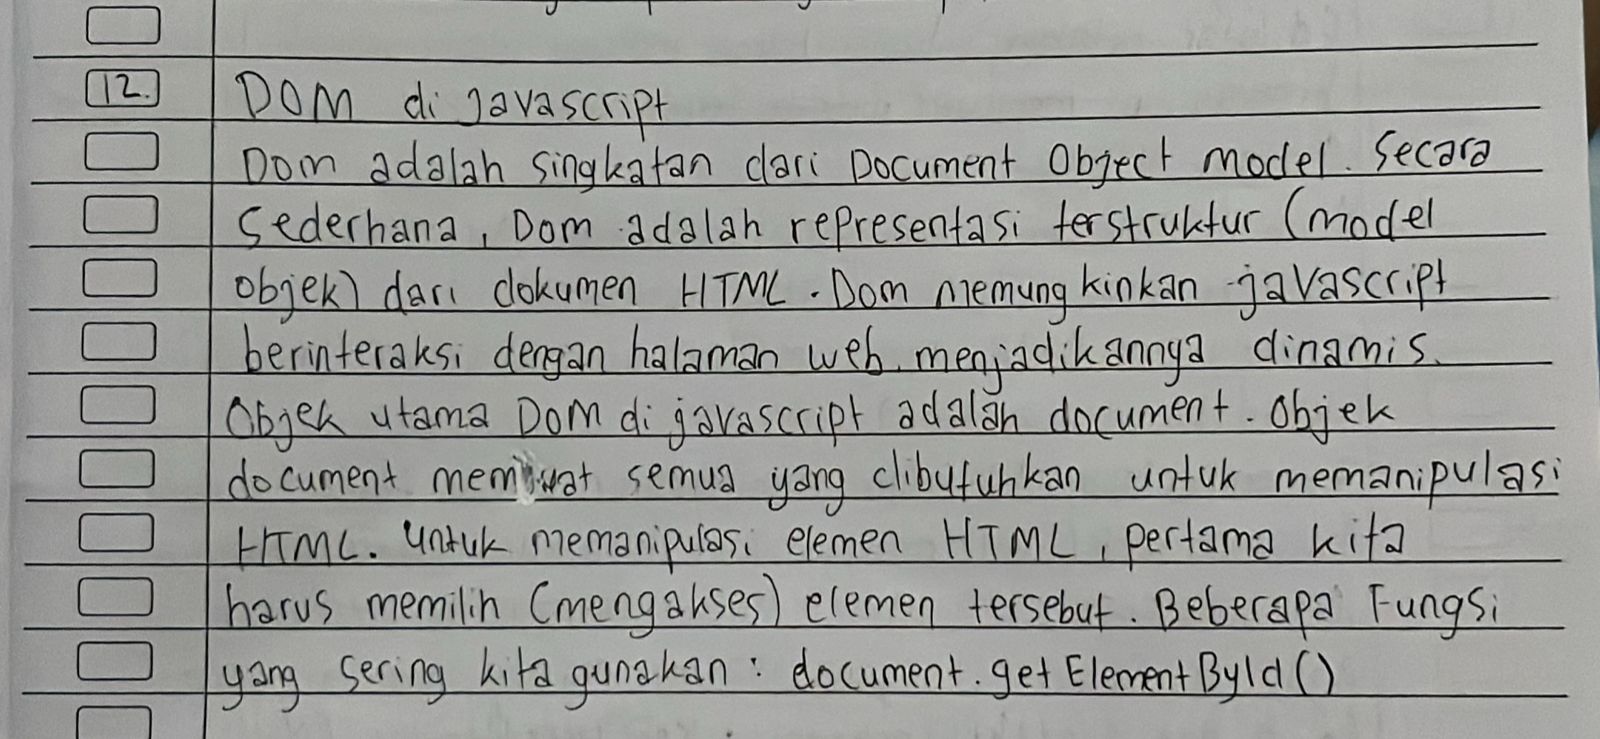 12. DOM di Javascript
Dom adalah singkatan dari Document Object Model. Secara
Sederhana, Dom adalah representasi terstruktur (model
objek) dari dokumen HTML. Dom memungkinkan javascript
berinteraksi dengan halaman web, menjadikannya dinamis.
Objek utama DOM di javascript adalah document. Objek
document memuat semua yang dibutuhkan untuk memanipulasi
HTML. Untuk memanipulasi elemen HTML, pertama kita
harus memilih (mengakses) elemen tersebut. Beberapa Fungsi
yang sering kita gunakan : document.getElementById()